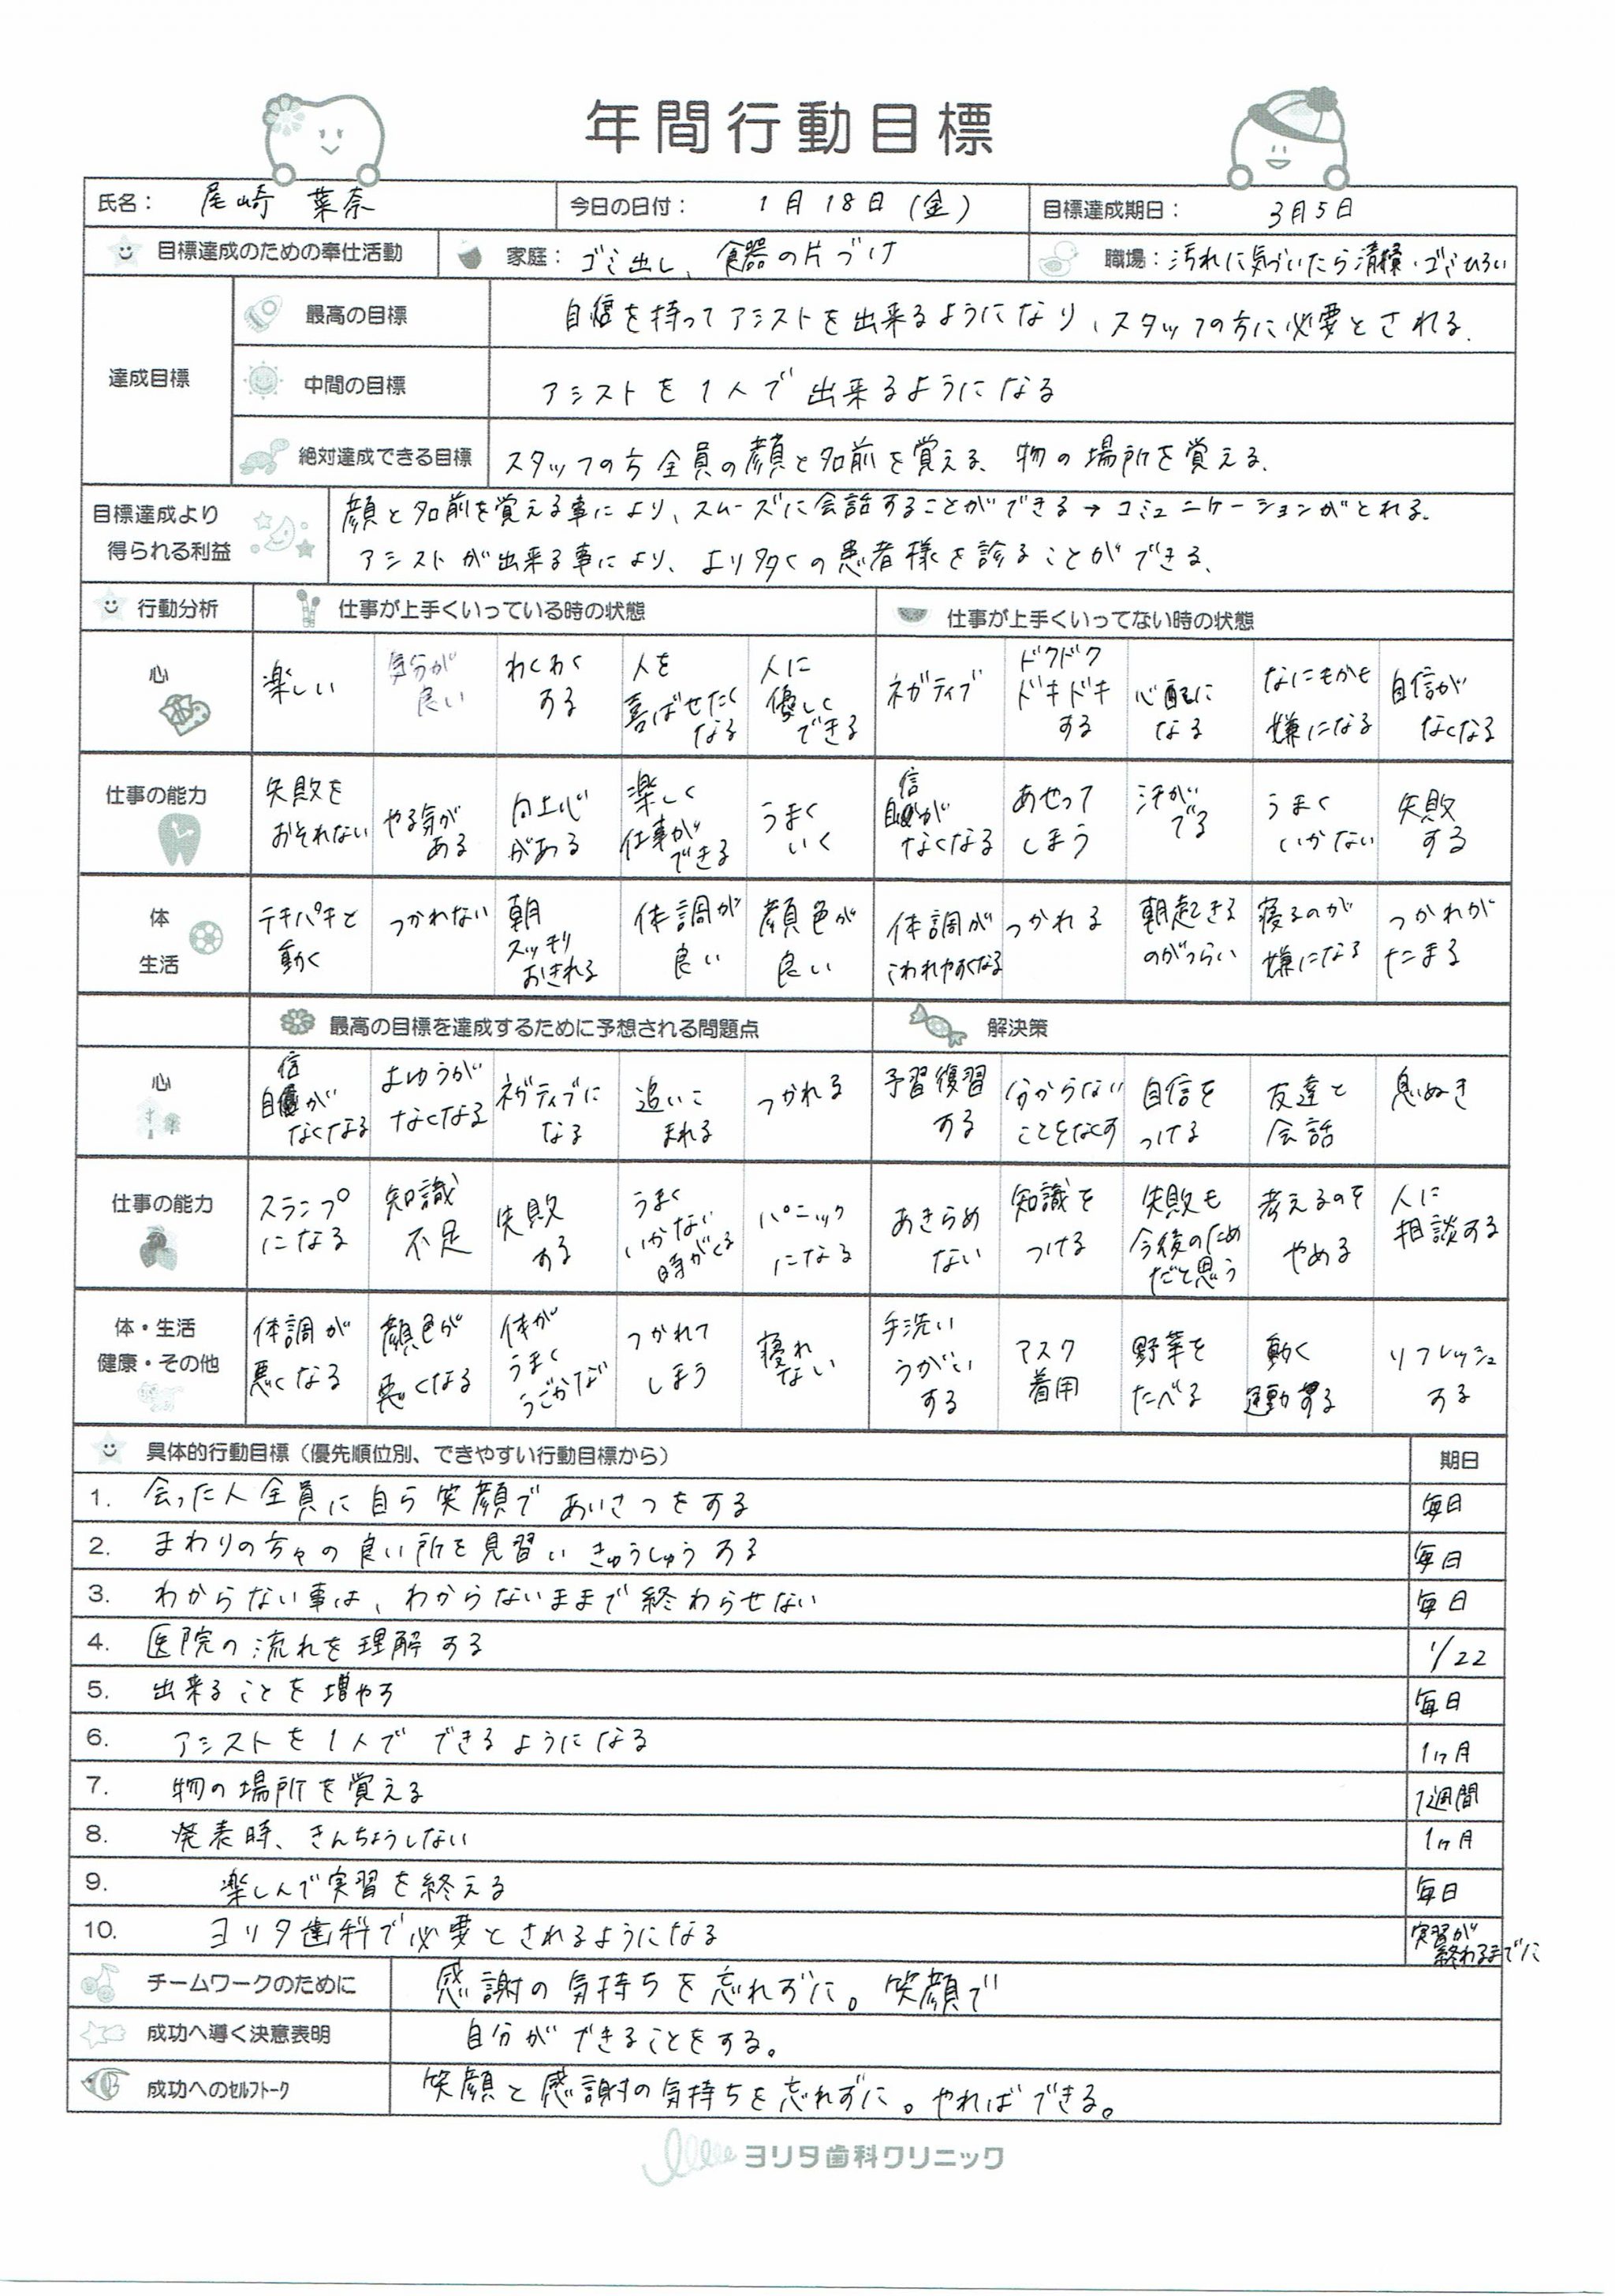 年間行動目標
氏名： 尾崎 葉奈 今日の日付： 1月18日(金) 目標達成期日： 3月5日
目標達成のための奉仕活動 家庭：ゴミ出し、食器の片づけ 職場：汚れに気づいたら清掃・ゴミひろい
達成目標
最高の目標 自信を持ってアシストを出来るようになり、スタッフの方に必要とされる。
中間の目標 アシストを1人で出来るようになる
絶対達成できる目標 スタッフの方全員の顔と名前を覚える、物の場所を覚える。
目標達成より得られる利益
顔と名前を覚える事により、スムーズに会話することができる→コミュニケーションがとれる。
アシストが出来る事により、より多くの患者様を診ることができる。
行動分析 仕事が上手くいっている時の状態 仕事が上手くいってない時の状態
心 楽しい 気分が良い わくわくする 人を喜ばせたくなる 人に優しくできる ネガティブ ドクドクドキドキする 心配になる なにもかも嫌になる 自信がなくなる
仕事の能力 失敗をおそれない やる気がある 向上心がある 楽しく仕事ができる うまくいく 自信がなくなる あせってしまう 汗がでる うまくいかない 失敗する
体 生活 テキパキと動く つかれない 朝スッキリおきれる 体調が良い 顔色が良い 体調がこわれやすくなる つかれる 朝起きるのがつらい 寝るのが嫌になる つかれがたまる
最高の目標を達成するために予想される問題点 解決策
心 自信がなくなる よゆうがなくなる ネガティブになる 追いこまれる つかれる 予習復習する 分からないことをなくす 自信をつける 友達と会話 息ぬき
仕事の能力 スランプになる 知識不足 失敗する うまくいかない時がくる パニックになる あきらめない 知識をつける 失敗も今後のためだと思う 考えるのをやめる 人に相談する
体・生活 健康・その他 体調が悪くなる 顔色が悪くなる 体がうまくうごかない つかれてしまう 寝れない 手洗いうがいする マスク着用 野菜をたべる 動く運動する リフレッシュする
具体的行動目標（優先順位別、できやすい行動目標から） 期日
1. 会った人全員に自ら笑顔であいさつをする 毎日
2. まわりの方々の良い所を見習いきゅうしゅうする 毎日
3. わからない事は、わからないままで終わらせない 毎日
4. 医院の流れを理解する 1/22
5. 出来ることを増やす 毎日
6. アシストを1人でできるようになる 1ヶ月
7. 物の場所を覚える 1週間
8. 発表時、きんちょうしない 1ヶ月
9. 楽しんで実習を終える 毎日
10. ヨリタ歯科で必要とされるようになる 実習が終わるまでに
チームワークのために 感謝の気持ちを忘れずに。笑顔で
成功へ導く決意表明 自分ができることをする。
成功へのｾﾙﾌﾄｰｸ 笑顔と感謝の気持ちを忘れずに。やればできる。
ヨリタ歯科クリニック